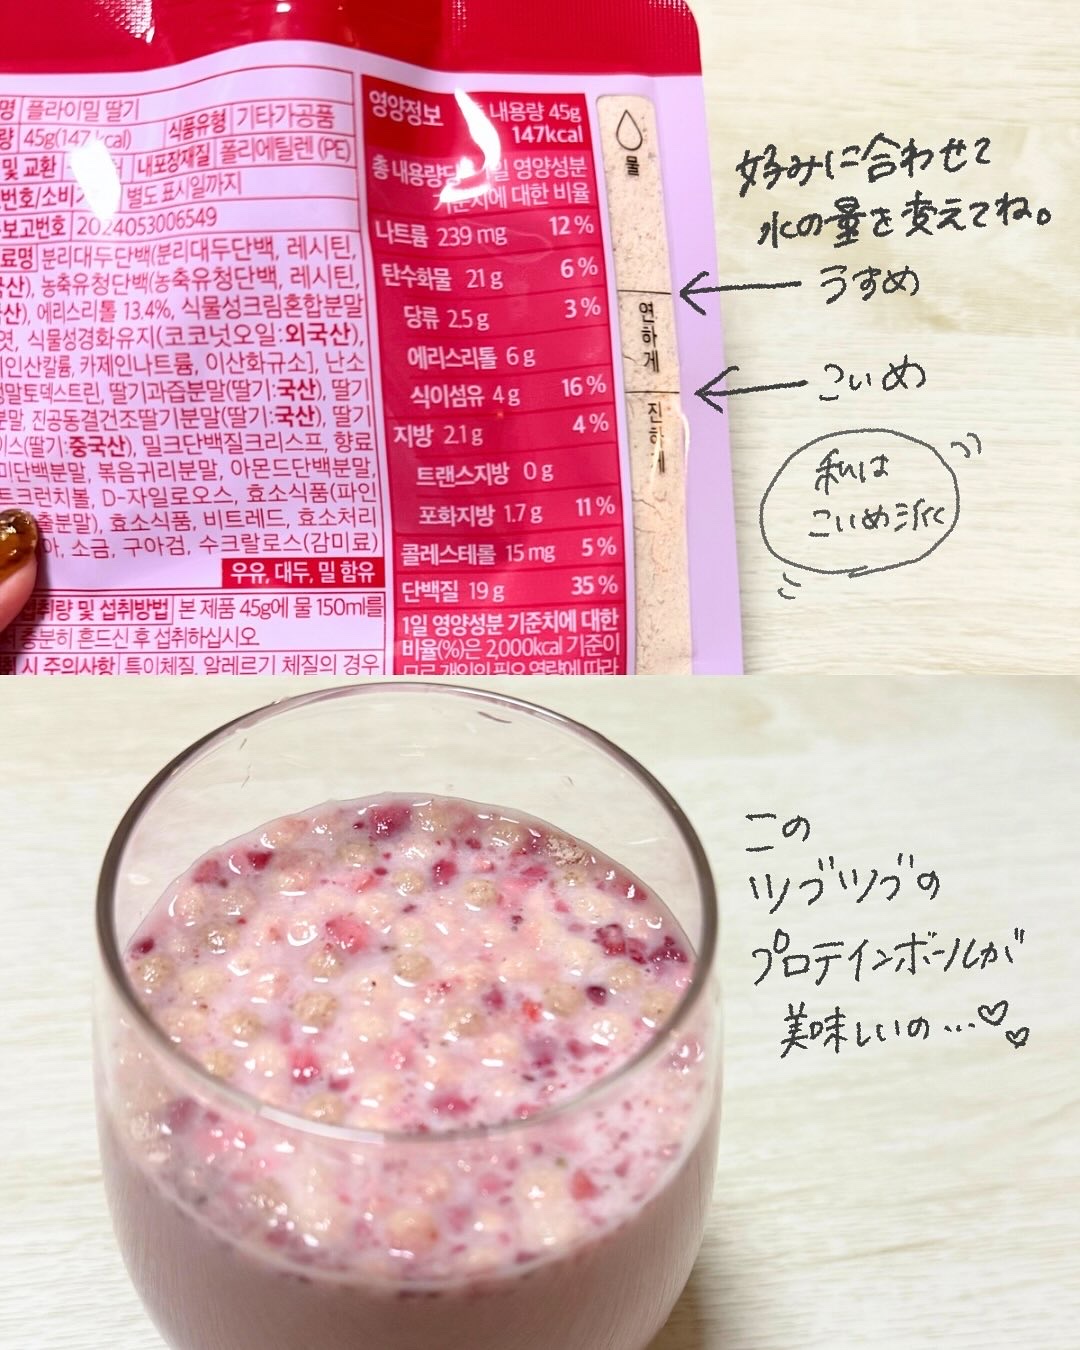 명 플라이밀 딸기
량 45g(147 kcal) 식품유형 기타가공품
및 교환 내포장재질 폴리에틸렌 (PE)
번호/소비기 별도 표시일까지
보고번호 2024053006549
료명 분리대두단백(분리대두단백, 레시틴,
국산), 농축유청단백(농축유청단백, 레시틴,
산), 에리스리톨 13.4%, 식물성크림혼합분말
엿, 식물성경화유지(코코넛오일:외국산),
인산칼륨, 카제인나트륨, 이산화규소], 난소
말토덱스트린, 딸기과즙분말(딸기:국산), 딸기
분말, 진공동결건조딸기분말(딸기:국산), 딸기
이스(딸기:중국산), 밀크단백질크리스프, 향료
미단백분말, 볶음귀리분말, 아몬드단백분말,
트크런치볼, D-자일로오스, 효소식품(파인
출분말), 효소식품, 비트레드, 효소처리
아, 소금, 구아검, 수크랄로스(감미료)
우유, 대두, 밀 함유
섭취량 및 섭취방법 본 제품 45g에 물 150ml를
충분히 흔드신 후 섭취하십시오
취 시 주의사항 특이체질, 알레르기 체질의 경우
영양정보 내용량 45g
147kcal
총 내용량당 1일 영양성분
기준치에 대한 비율
나트륨 239 mg 12 %
탄수화물 21 g 6 %
당류 2.5 g 3 %
에리스리톨 6 g
식이섬유 4 g 16 %
지방 2.1 g 4 %
트랜스지방 0 g
포화지방 1.7 g 11 %
콜레스테롤 15 mg 5 %
단백질 19 g 35 %
1일 영양성분 기준치에 대한
비율(%)은 2,000kcal 기준이
므로 개인의 필요 열량에 따라
물
연하게
진하게
好みに合わせて
水の量を変えてね。
うすめ
こいめ
私は
こいめ派
この
ツブツブの
プロテインボールが
美味しいの…♡♡